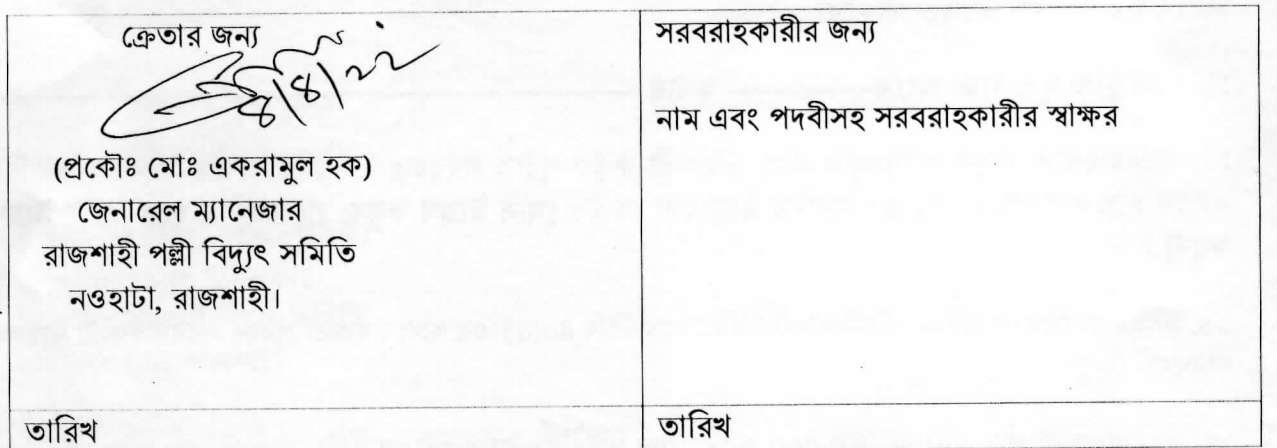 ক্রেতার জন্য
(প্রকৌঃ মোঃ একরামুল হক)
জেনারেল ম্যানেজার
রাজশাহী পল্লী বিদ্যুৎ সমিতি
নওহাটা, রাজশাহী।
তারিখ
সরবরাহকারীর জন্য
নাম এবং পদবীসহ সরবরাহকারীর স্বাক্ষর
তারিখ